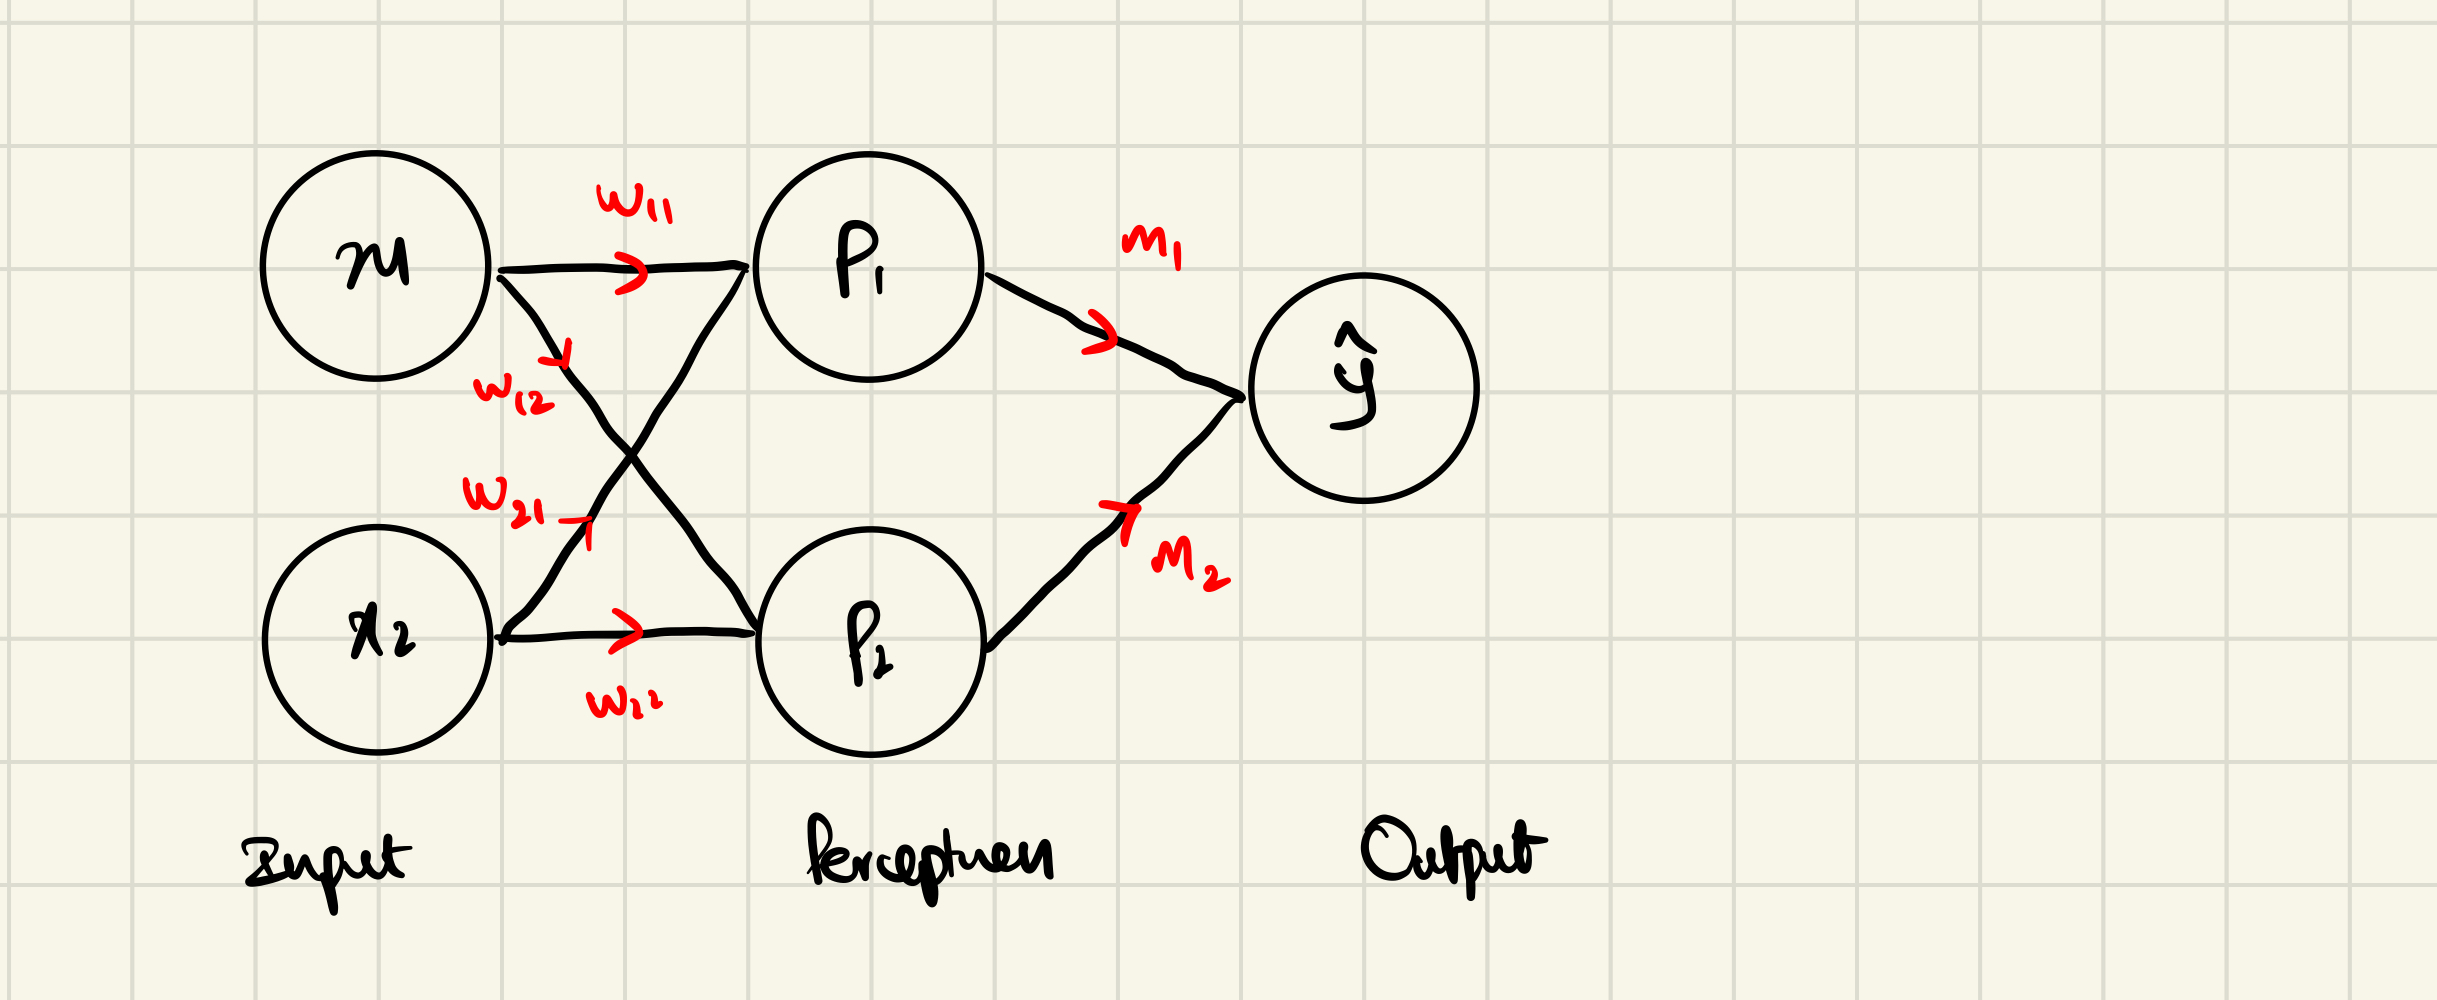 x1 w11 P1 m1
w12 ŷ
w21
x2 P2 m2
w22
Input Perceptron Output